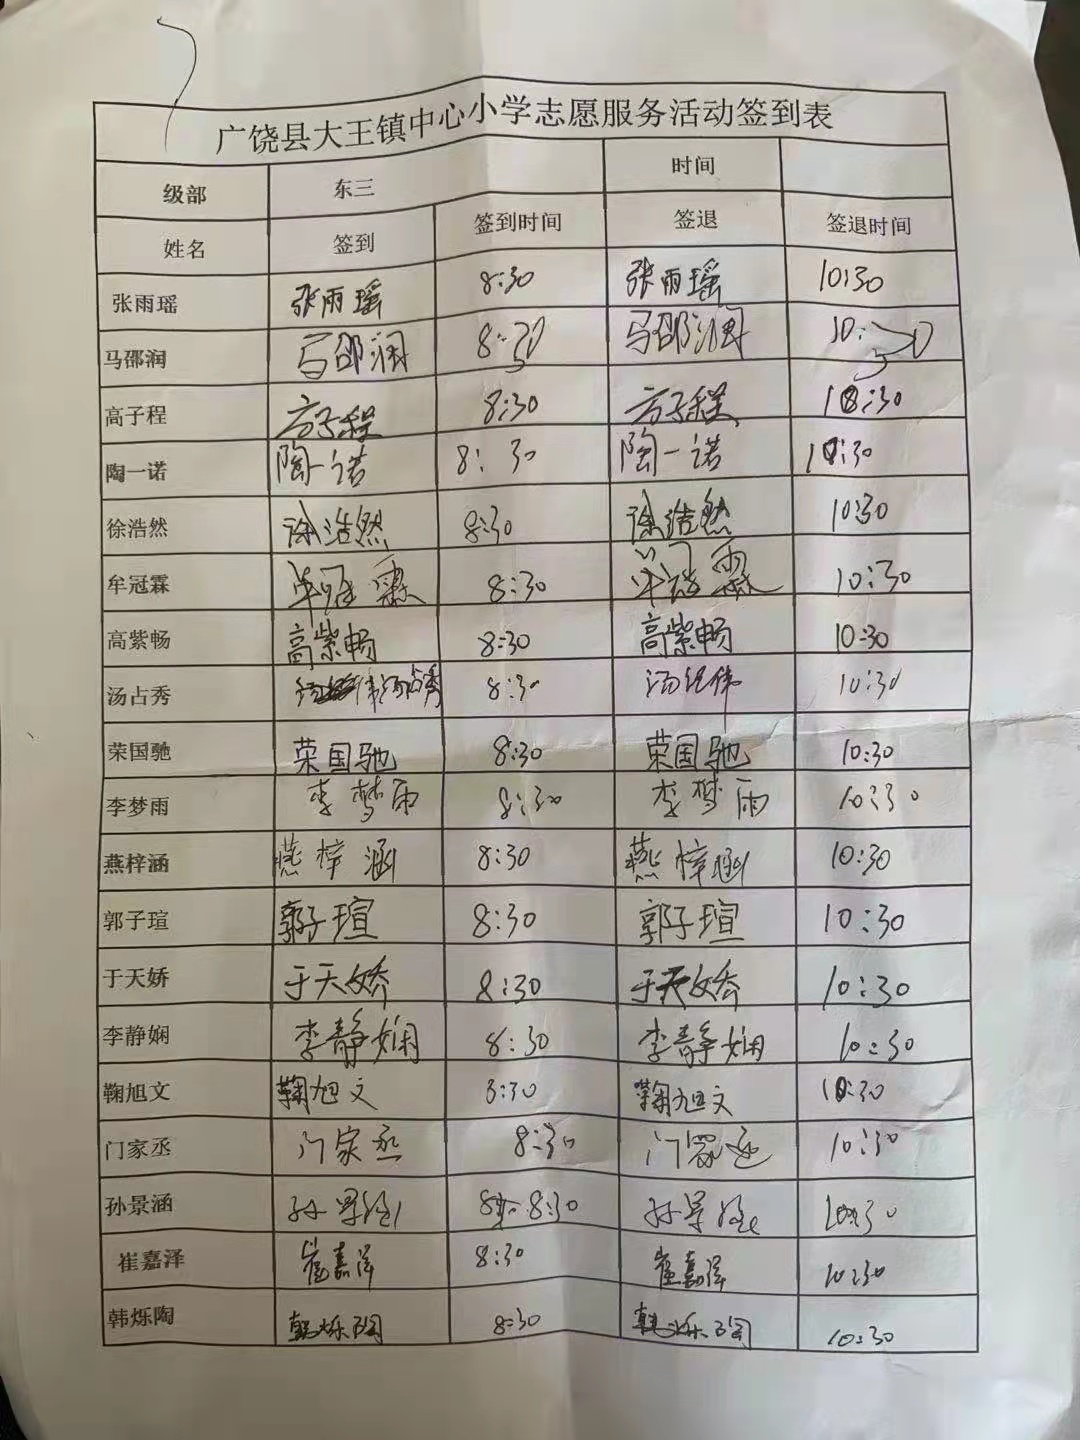 广饶县大王镇中心小学志愿服务活动签到表
级部 东三 时间
姓名 签到 签到时间 签退 签退时间
张雨瑶 张雨瑶 8:30 张雨瑶 10:30
马邵润 马邵润 8:30 马邵润 10:30
高子程 高子程 8:30 高子程 10:30
陶一诺 陶一诺 8:30 陶一诺 10:30
徐浩然 徐浩然 8:30 徐浩然 10:30
牟冠霖 牟冠霖 8:30 牟冠霖 10:30
高紫畅 高紫畅 8:30 高紫畅 10:30
汤占秀 汤占秀 8:30 10:30
荣国驰 荣国驰 8:30 荣国驰 10:30
李梦雨 李梦雨 8:30 李梦雨 10:30
燕梓涵 燕梓涵 8:30 燕梓涵 10:30
郭子瑄 郭子瑄 8:30 郭子瑄 10:30
于天娇 于天娇 8:30 于天娇 10:30
李静娴 李静娴 8:30 李静娴 10:30
鞠旭文 鞠旭文 8:30 鞠旭文 10:30
门家丞 门家丞 8:30 门家丞 10:30
孙景涵 孙景涵 8:30 孙景涵 10:30
崔嘉泽 崔嘉泽 8:30 崔嘉泽 10:30
韩烁陶 韩烁陶 8:30 韩烁陶 10:30